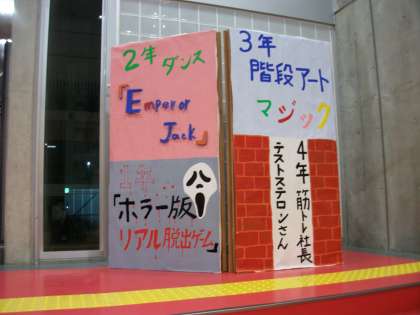 2年ダンス
「Emperor
Jack」
1年
「ホラー版
リアル脱出ゲーム」
3年
階段アート
マジック
4年筋トレ社長
テストステロンさん